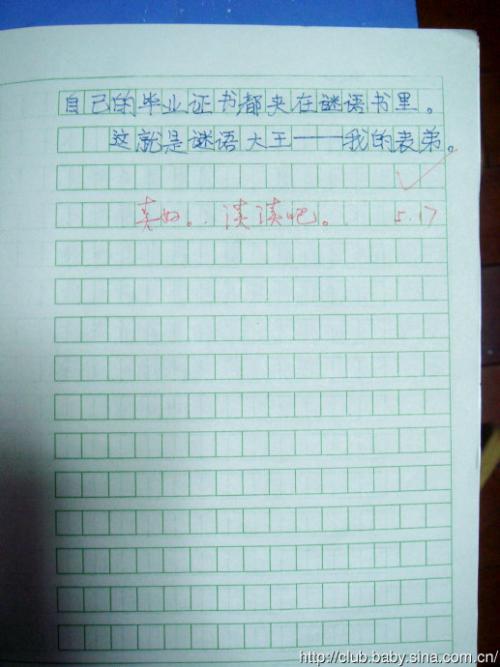 自己的毕业证书都夹在谜语书里。
这就是谜语大王——我的表弟。
真好。读读吧。 5.17
http://club.baby.sina.com.cn/